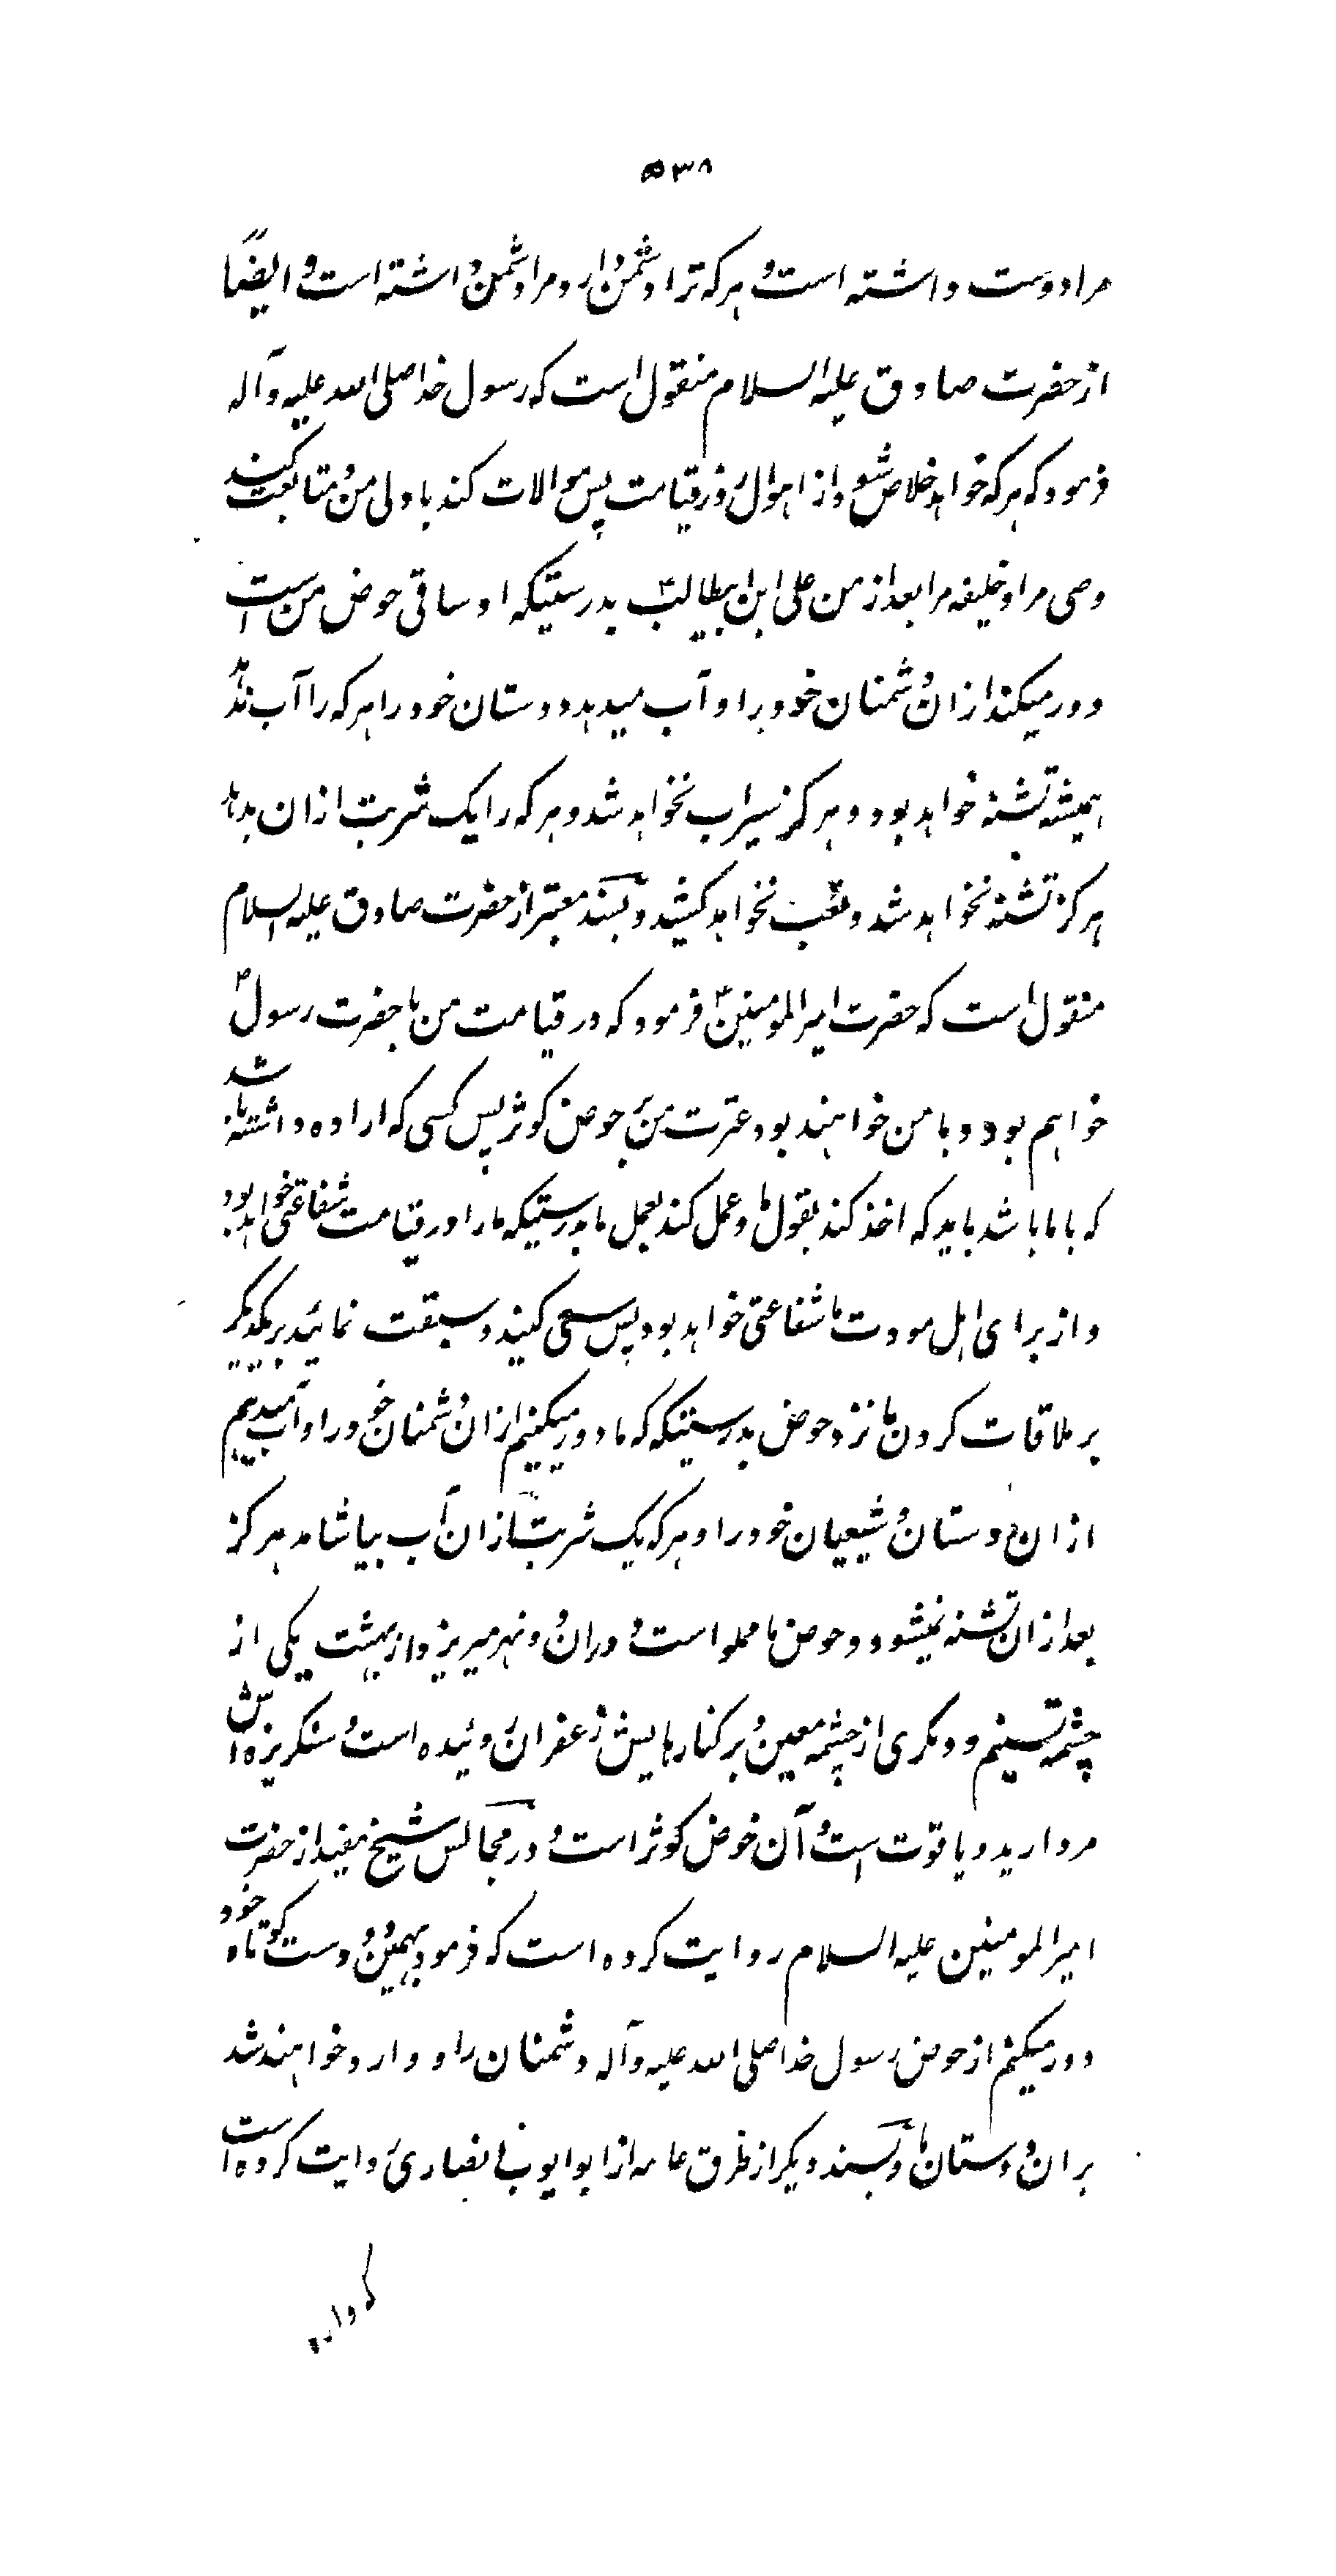 ۵۳۸
مرا دوست داشته است و هرکه ترا دشمن دارد مرا دشمن داشته است و ایضًا
از حضرت صادق علیه السلام منقول است که رسول خدا صلی الله علیه وآله
فرمود که هرکه خواهد خلاص شود از اهوال روز قیامت پس موالات کند با ولی من و متابعت کند
وصی مرا و خلیفه مرا بعد از من علی ابن ابیطالبؑ بدرستیکه او ساقی حوض من است
دور میکند ازان دشمنان خود را و آب میدهد دوستان خود را هرکه را آب ندهد
همیشه تشنه خواهد بود و هرکز سیراب نخواهد شد و هرکه را یک شربت ازان بدهد
هرکز تشنه نخواهد شد و تعب نخواهد کشید و بسند معتبر از حضرت صادق علیه السلام
منقول است که حضرت امیرالمومنینؑ فرمود که در قیامت من با حضرت رسولؐ
خواهم بود و با من خواهند بود عترت من بر حوض کوثر پس کسی که اراده داشته باشد
که با ما باشد باید که اخذ کند بقول ما و عمل کند بعمل ما بدرستیکه ما را در قیامت شفاعتی خواهد بود
و از برای اهل مودت ما شفاعتی خواهد بود پس سعی کنید و سبقت نمائید بر یکدیکر
بر ملاقات کردن ما نزد حوض بدرستیکه که ما دور میکنیم ازان دشمنان خود را و آب میدهیم
ازان دوستان و شیعیان خود را و هرکه یک شربت ازان آب بیاشامد هرکز
بعد ازان تشنه نمیشود و حوض ما مملو است و دران دو نهر میریزد از بهشت یکی از
چشمه تسنیم و دیکری از چشمه معین و بر کنارهایش زعفران روئیده است و سنکریزه اش
مروارید و یاقوت است و آن حوض کوثر است و در مجالس شیخ مفید از حضرت
امیرالمومنین علیه السلام روایت کرده است که فرمود بهمین دو دست کوتاه خود
دور میکنم از حوض رسول خدا صلی الله علیه وآله دشمنان را و وارد خواهند شد
بران دوستان ما و بسند دیکر از طرق عامه از ابو ایوب انصاری روایت کرده است